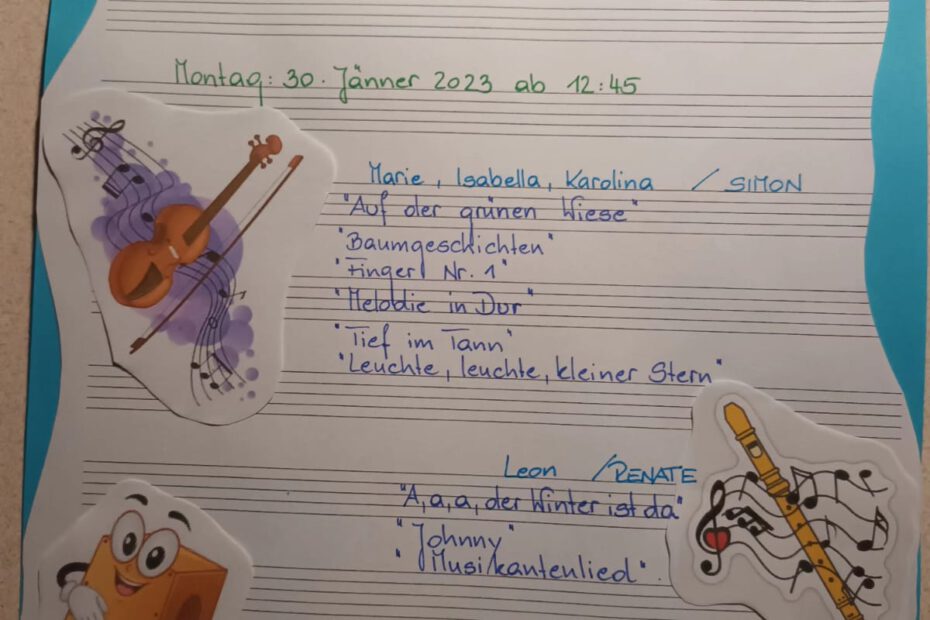 Montag: 30. Jänner 2023 ab 12:45
Marie, Isabella, Karolina / SIMON
"Auf der grünen Wiese"
"Baumgeschichten"
"Finger Nr. 1"
"Melodie in Dur"
"Tief im Tann"
"Leuchte, leuchte, kleiner Stern"
Leon / RENATE
"A, a, a, der Winter ist da"
"Johnny"
"Musikantenlied".